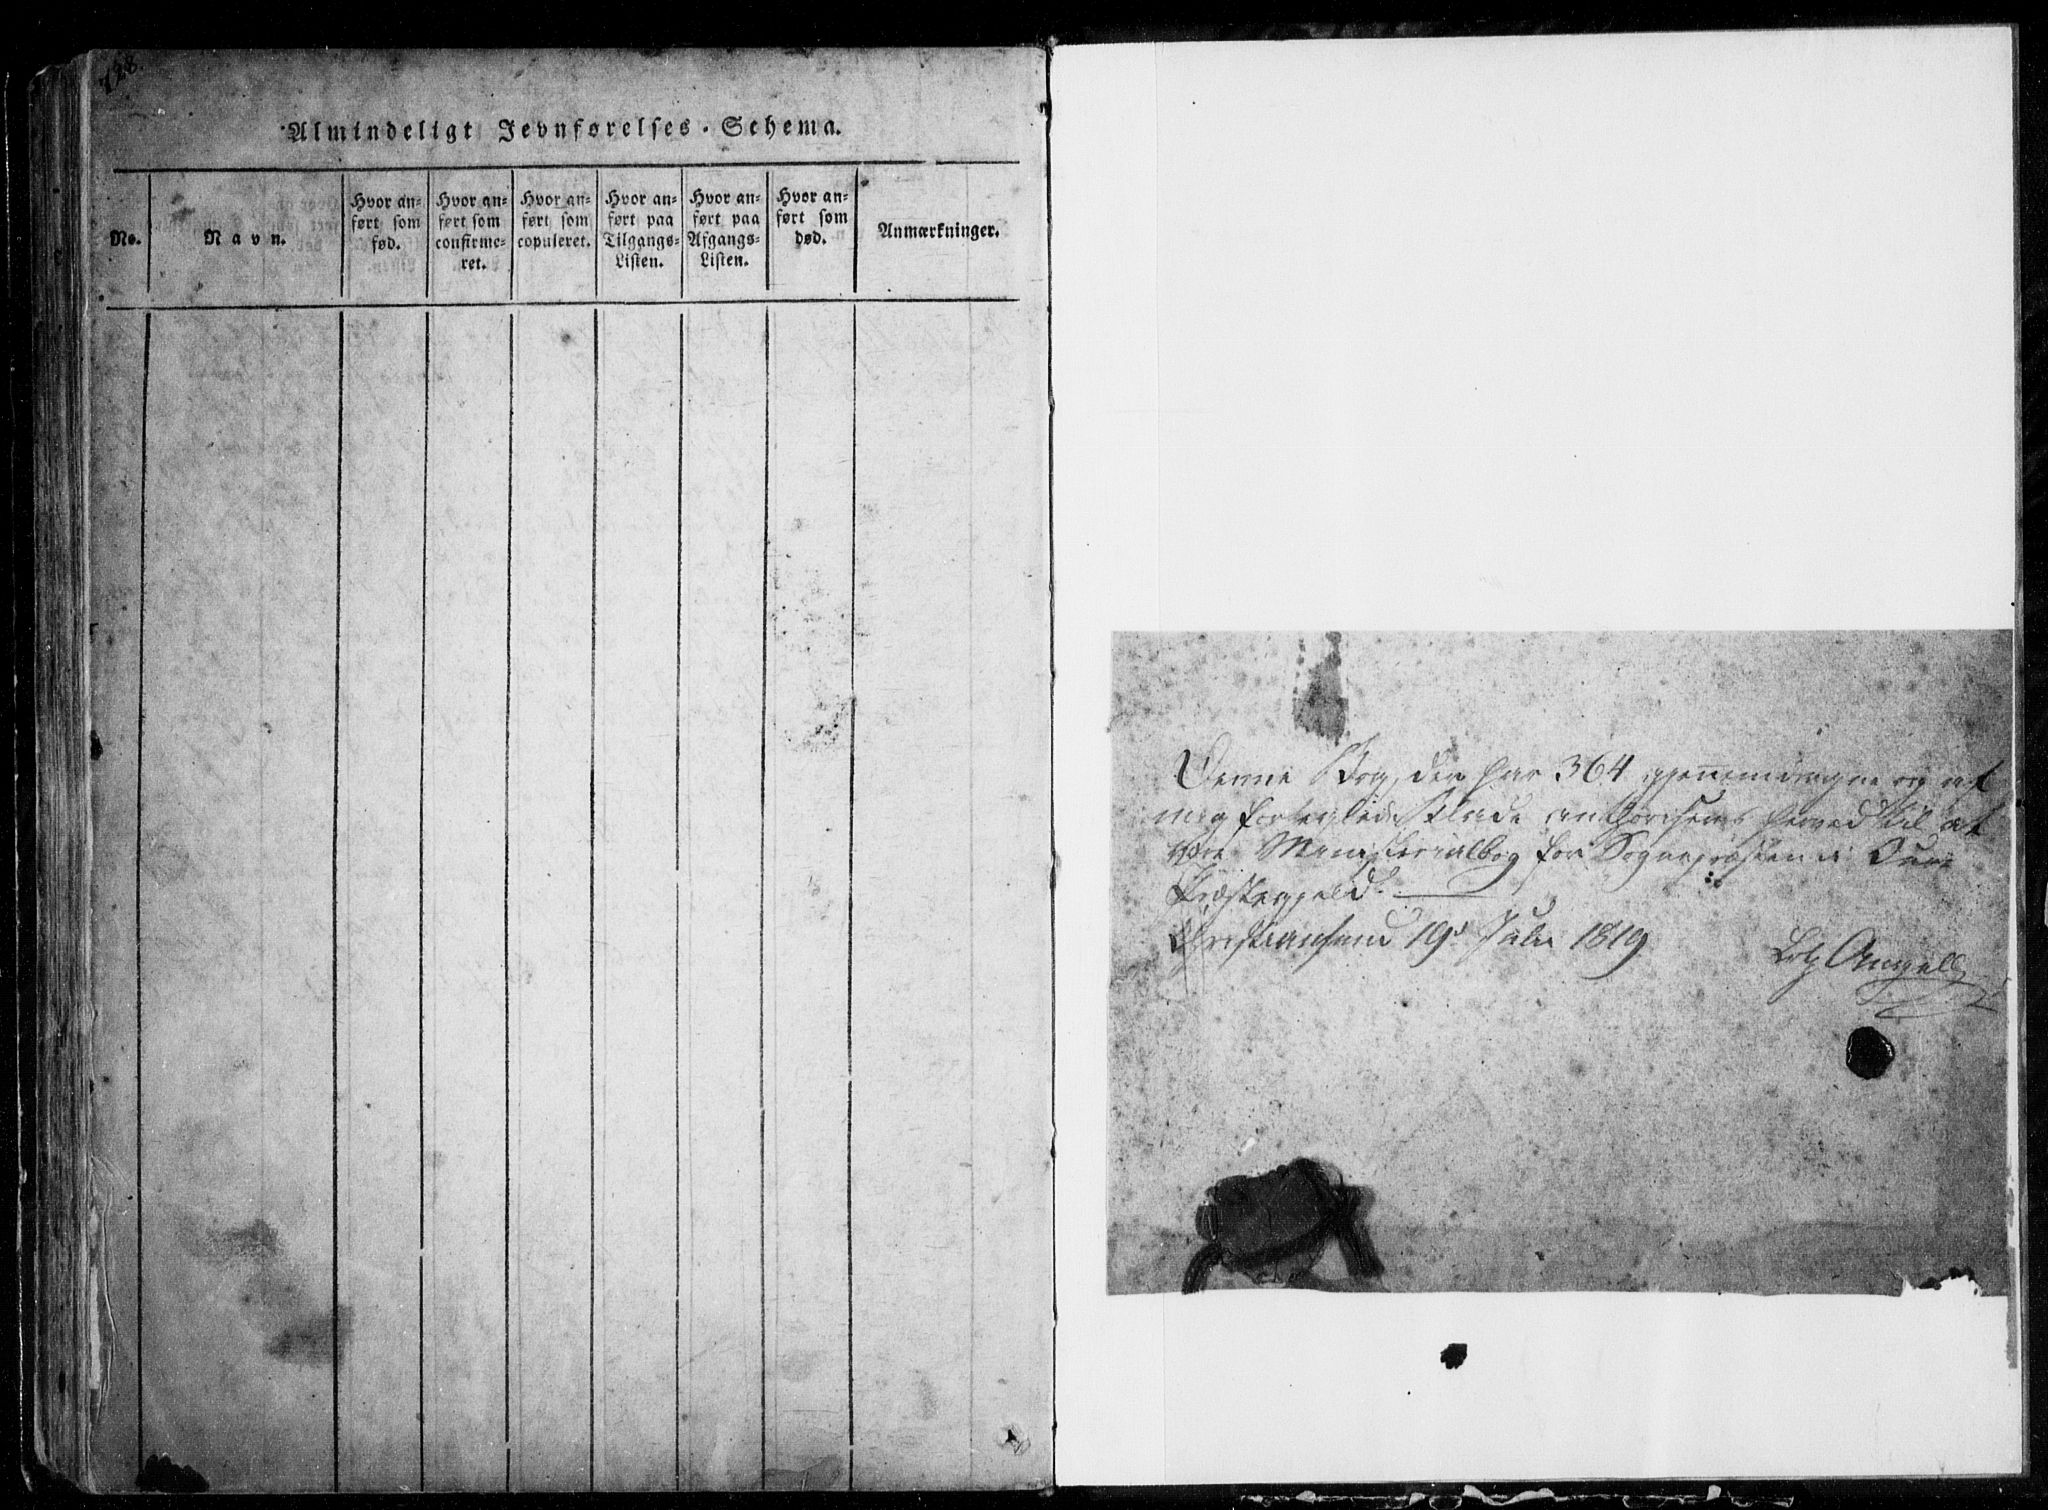 728.
Almindeligt Jevnførelses-Schema.
No.
Navn.
Hvor an-
ført som
fød.
Hvor an-
ført som
confirme-
ret.
Hvor an-
ført som
copuleret.
Hvor an-
ført paa
Tilgangs-
Listen.
Hvor an-
ført paa
Afgangs-
Listen.
Hvor an-
ført som
død.
Anmærkninger.
Denne Bog, der har 364 gjennemdragne og af
mig forseglede Blade authoriseres herved til at
være Ministerialbog for Sognepræsten i
Præstegjeld.
Christiansand 19d Juli 1819
Angell